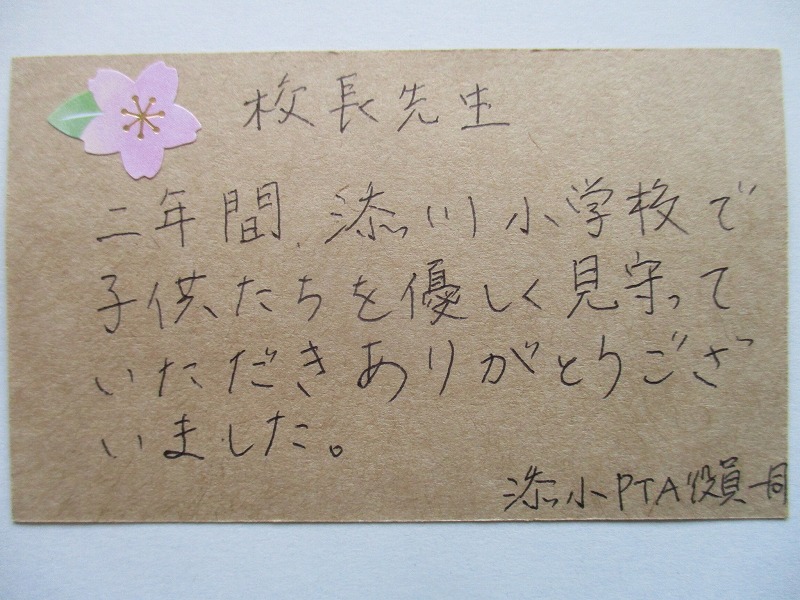 校長先生
二年間 添川小学校で
子供たちを優しく見守って
いただきありがとうござ
いました。
添小PTA役員一同